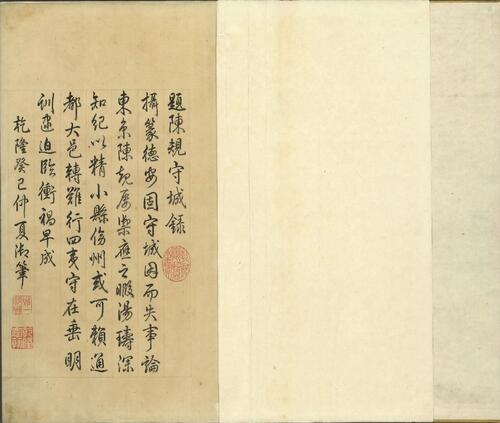 題陳規守城錄
攝篆德安固守城因而失事論
東京陳規屢禦應之暇湯璹深
知紀以精小縣傷州或可賴通
都大邑轉難行四夷守在垂明
訓逮迫臨衝禍早成
乾隆癸巳仲夏御筆